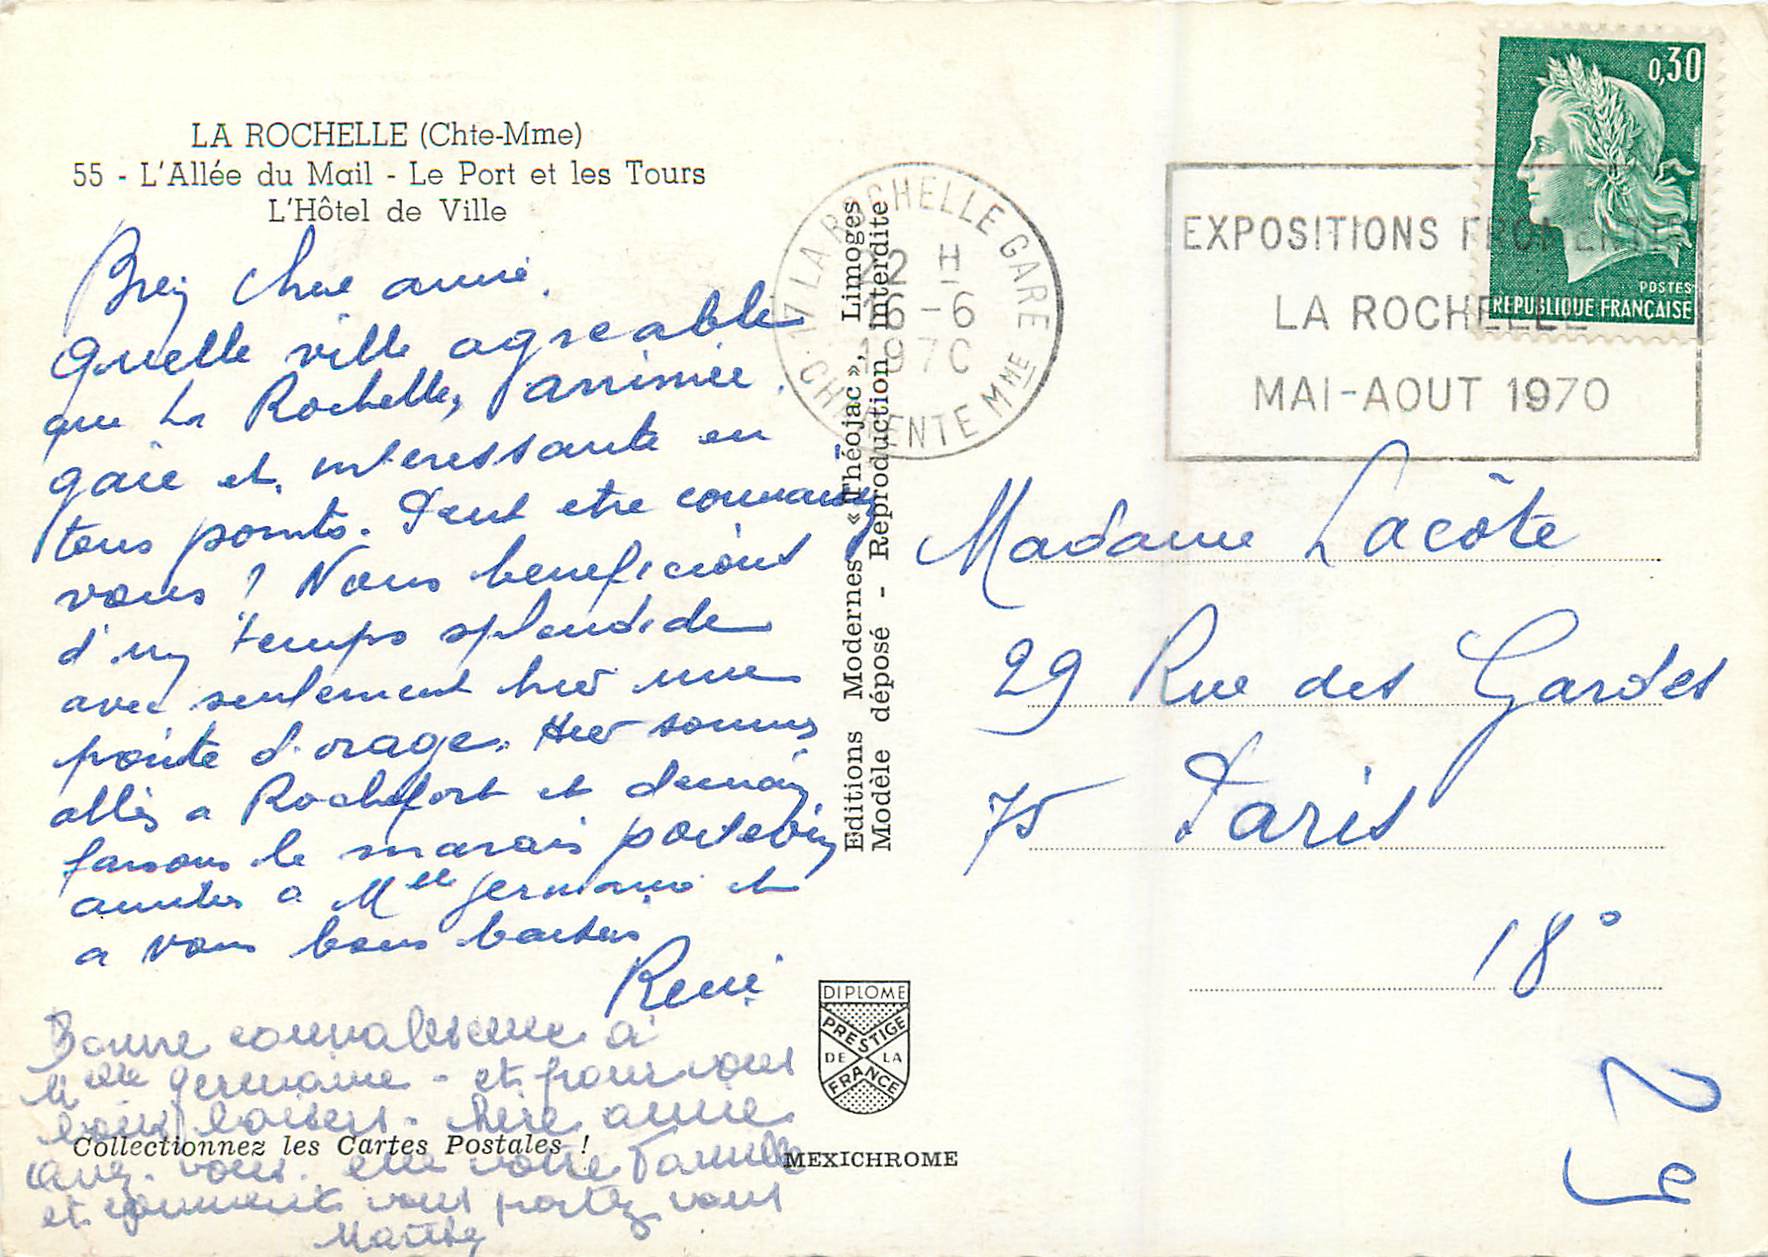 LA ROCHELLE (Chte-Mme)
55 - L'Allée du Mail - Le Port et les Tours
L'Hôtel de Ville
chere amie.
Quelle ville agreable
que La Rochelle, animée,
gaie et interessante en
tous points. Peut etre connaissez
vous ? Nous beneficions
d'un temps splendide
avec seulement hier une
pointe d'orage. Hier sommes
allés a Rochefort et demain
faisons le marais poitevin
amities a Melle Germaine et
a vous bons baisers
René
Bonne convalescence à
Melle Germaine - et pour vous
bons baisers. chère amie
avez vous eue votre Famille
et comment vous portez vous
Collectionnez les Cartes Postales !
Editions Modernes « Théojac », Limoges
Modèle déposé - Reproduction interdite
DIPLOME
PRESTIGE
DE LA
FRANCE
MEXICHROME
17 LA ROCHELLE GARE
22 H
16-6
1970
CHARENTE MME
EXPOSITIONS
LA ROCHELLE
MAI-AOUT 1970
0,30
POSTES
REPUBLIQUE FRANÇAISE
Madame Lacôte
29 Rue des Gardes
75 Paris
18°
29